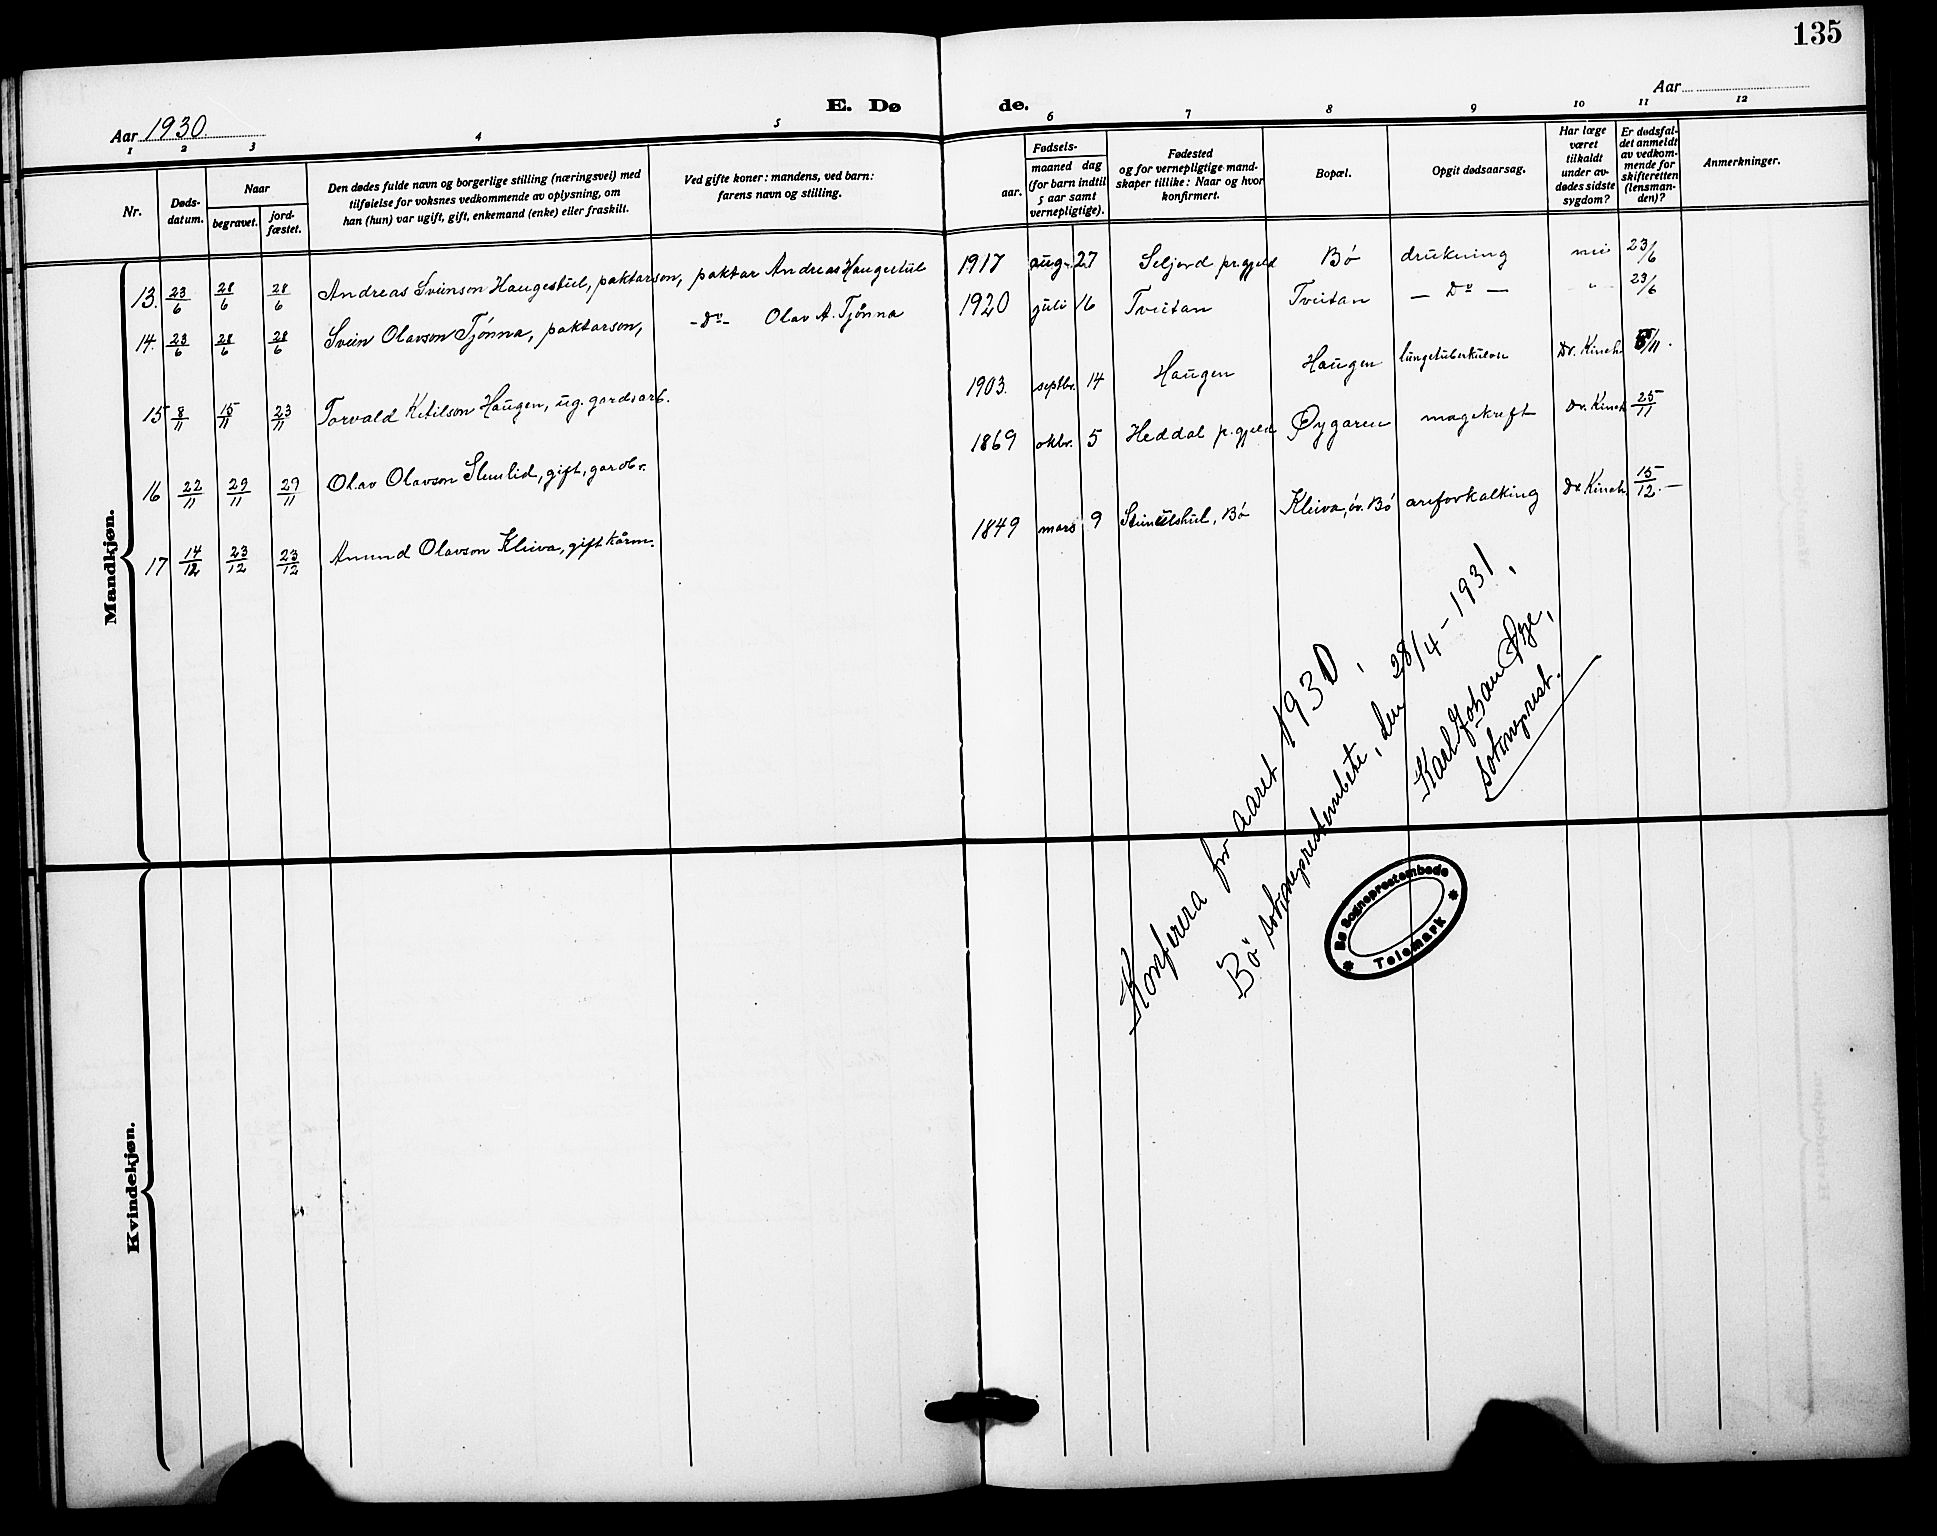 135
E. Dø de.
Aar 1930
Aar
1 2 3 4 5 6 7 8 9 10 11 12
Nr.
Døds-
datum.
Naar
begravet.
jord-
fæstet.
Den dødes fulde navn og borgerlige stilling (næringsvei) med
tilføielse for voksnes vedkommende av oplysning, om
han (hun) var ugift, gift, enkemand (enke) eller fraskilt.
Ved gifte koner: mandens, ved barn:
farens navn og stilling.
Fødsels-
aar.
maaned dag
(for barn indtil
5 aar samt
vernepligtige).
Fødested
og for vernepligtige mand-
skaper tillike: Naar og hvor
konfirmert.
Bopæl.
Opgit dødsaarsag.
Har læge
været
tilkaldt
under av-
dødes sidste
sygdom?
Er dødsfal-
det anmeldt
av vedkom-
mende for
skifteretten
(lensman-
den)?
Anmerkninger.
Mandkjøn.
13. 23/6 28/6 28/6 Andreas Sveinson Haugestul, paktarson, paktar Andreas Haugestul 1917 aug. 27 Seljord pr.gjeld Bö drukning nei 23/6
14. 23/6 28/6 28/6 Svein Olavson Tjönna, paktarson, -Do- Olav A. Tjönna 1920 juli 16 Tveitan Tveitan — Do — " 23/6
15 8/11 15/11 23/11 Torvald Ketilson Haugen, ug. gardsarb. 1903. septbr. 14 Haugen Haugen lungetuberkulose Dr. Kinck /11.
16 22/11 29/11 29/11 Olav Olavson, gift, gardbr. 1869 oktbr. 5 Heddal p.gjeld Øygaren magekreft Dr. Kinck 25/11
17 14/12 23/12 23/12 Amund Olavson Kleiva, gift kårm. 1849 mars 9 Bö Kleiva, öv. Bö areforkalking Dr. Kinck 15/12.—
Konferera for aaret 1930.
Bö sokneprestembete, den 28/4 - 1931.
Karl Johan Øye,
sokneprest.
Bø Sogneprestembede
* Telemark *
Kvindekjøn.